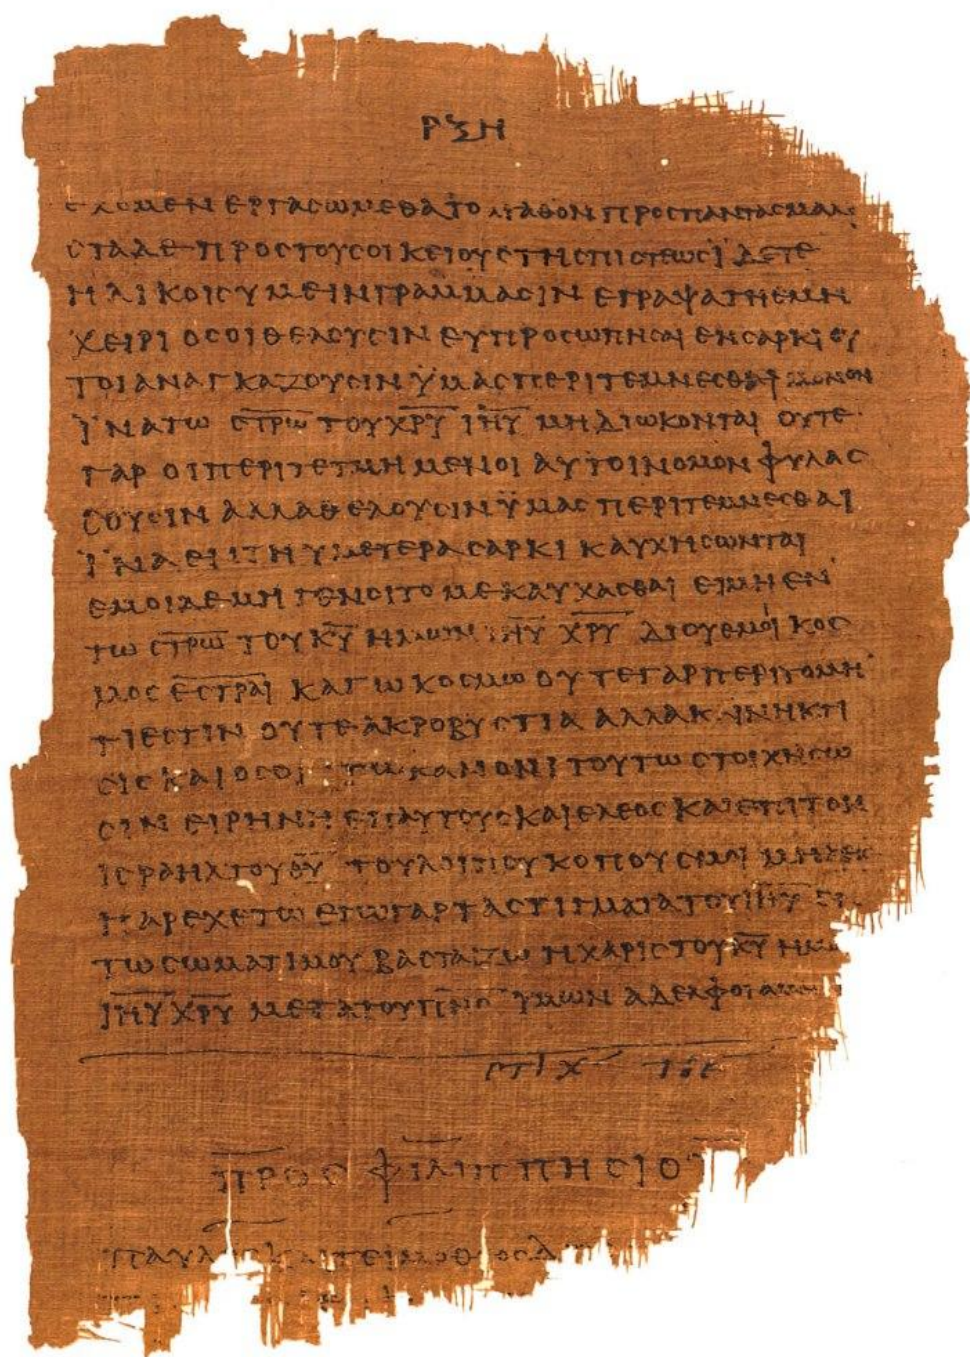 ΡΞΗ
ΕΧΟΜΕΝ ΕΡΓΑΣΩΜΕΘΑ ΤΟ ΑΓΑΘΟΝ ΠΡΟΣ ΠΑΝΤΑΣ ΜΑΛΙ
ΣΤΑ ΔΕ ΠΡΟΣ ΤΟΥΣ ΟΙΚΕΙΟΥΣ ΤΗΣ ΠΙΣΤΕΩΣ ΪΔΕΤΕ
ΗΛΙΚΟΙΣ ΥΜΕΙΝ ΓΡΑΜΜΑΣΙΝ ΕΓΡΑΨΑ ΤΗ ΕΜΗ
ΧΕΙΡΙ ΟΣΟΙ ΘΕΛΟΥΣΙΝ ΕΥΠΡΟΣΩΠΗΣΑΙ ΕΝ ΣΑΡΚΙ ΟΥ
ΤΟΙ ΑΝΑΓΚΑΖΟΥΣΙΝ ΫΜΑΣ ΠΕΡΙΤΕΜΝΕΣΘΑΙ ΜΟΝΟΝ
ΪΝΑ ΤΩ Σ̅Τ̅Ρ̅Ω̅ ΤΟΥ Χ̅Ρ̅Υ̅ Ι̅Η̅Υ̅ ΜΗ ΔΙΩΚΟΝΤΑΙ ΟΥΤΕ
ΓΑΡ ΟΙ ΠΕΡΙΤΕΤΜΗΜΕΝΟΙ ΑΥΤΟΙ ΝΟΜΟΝ ΦΥΛΑΣ
ΣΟΥΣΙΝ ΑΛΛΑ ΘΕΛΟΥΣΙΝ ΫΜΑΣ ΠΕΡΙΤΕΜΝΕΣΘΑΙ
ΪΝΑ ΕΝ ΤΗ ΥΜΕΤΕΡΑ ΣΑΡΚΙ ΚΑΥΧΗΣΩΝΤΑΙ
ΕΜΟΙ ΔΕ ΜΗ ΓΕΝΟΙΤΟ ΜΕ ΚΑΥΧΑΣΘΑΙ ΕΙ ΜΗ ΕΝ
ΤΩ Σ̅Τ̅Ρ̅Ω̅ ΤΟΥ Κ̅Υ̅ ΗΜΩΝ Ι̅Η̅Υ̅ Χ̅Ρ̅Υ̅ ΔΙ ΟΥ ΕΜΟΙ ΚΟΣ
ΜΟΣ Ε̅Σ̅Τ̅Ρ̅Α̅Ι̅ ΚΑΓΩ ΚΟΣΜΩ ΟΥΤΕ ΓΑΡ ΠΕΡΙΤΟΜΗ
ΤΙ ΕΣΤΙΝ ΟΥΤΕ ΑΚΡΟΒΥΣΤΙΑ ΑΛΛΑ ΚΑΙΝΗ ΚΤΙ
ΣΙΣ ΚΑΙ ΟΣΟΙ ΤΩ ΚΑΝΟΝΙ ΤΟΥΤΩ ΣΤΟΙΧΗΣΩ
ΣΙΝ ΕΙΡΗΝΗ ΕΠ ΑΥΤΟΥΣ ΚΑΙ ΕΛΕΟΣ ΚΑΙ ΕΠΙ ΤΟΝ
ΙΣΡΑΗΛ ΤΟΥ Θ̅Υ̅ ΤΟΥ ΛΟΙΠΟΥ ΚΟΠΟΥΣ ΜΟΙ ΜΗΔΕΙΣ
ΠΑΡΕΧΕΤΩ ΕΓΩ ΓΑΡ ΤΑ ΣΤΙΓΜΑΤΑ ΤΟΥ Ι̅Η̅Υ̅ ΕΝ
ΤΩ ΣΩΜΑΤΙ ΜΟΥ ΒΑΣΤΑΖΩ Η ΧΑΡΙΣ ΤΟΥ Κ̅Υ̅ ΗΜΩ
Ι̅Η̅Υ̅ Χ̅Ρ̅Υ̅ ΜΕΤΑ ΤΟΥ Π̅Ν̅Σ̅ ΥΜΩΝ ΑΔΕΛΦΟΙ ΑΜΗΝ
ΣΤΙΧ
ΠΡΟΣ ΦΙΛΙΠΠΗΣΙΟΥ
ΠΑΥΛΟΣ ΚΑΙ ΤΕΙΜΟΘΕΟΣ